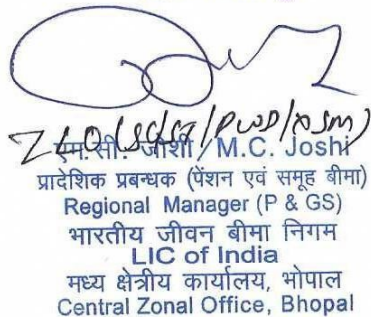 ZLO (SC/ST/PWD/XSM)
एम. सी. जोशी / M.C. Joshi
प्रादेशिक प्रबन्धक (पेंशन एवं समूह बीमा)
Regional Manager (P & GS)
भारतीय जीवन बीमा निगम
LIC of India
मध्य क्षेत्रीय कार्यालय, भोपाल
Central Zonal Office, Bhopal